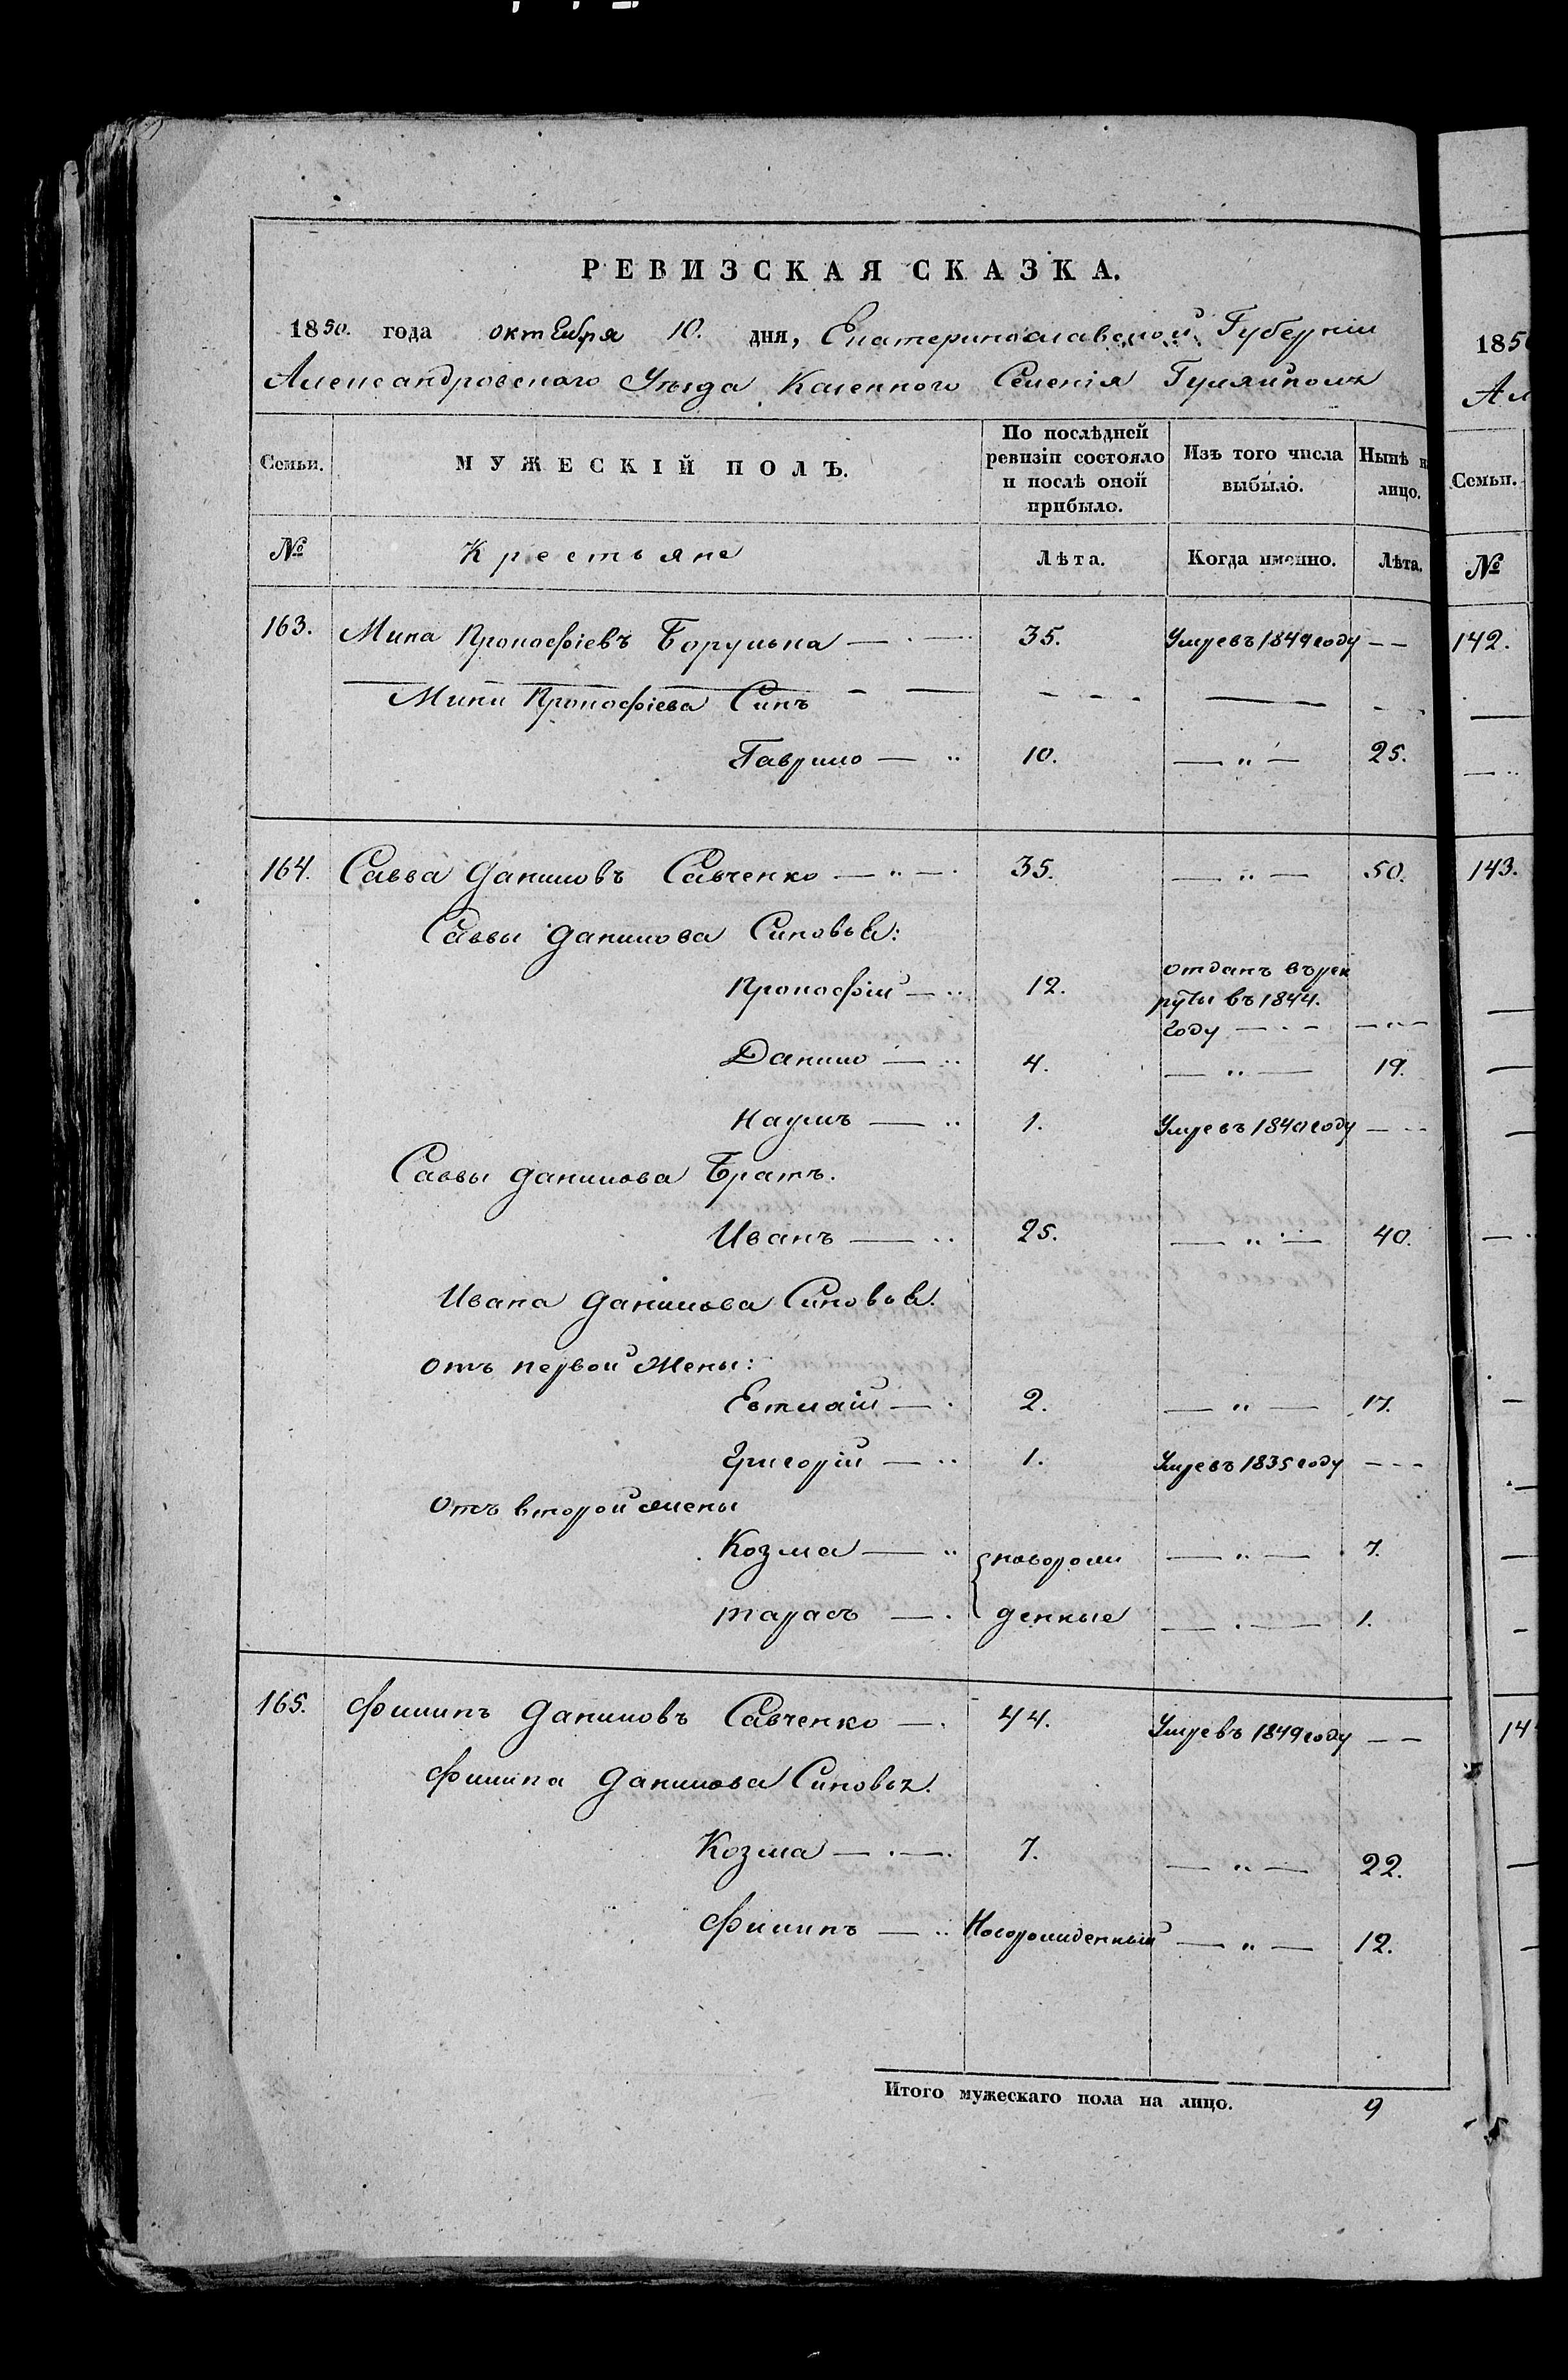 РЕВИЗСКАЯ СКАЗКА.
1850. года октября 10. дня, Екатеринославской Губерніи
Александровского Уѣзда Казенного Селенія Гуляйполя
Семьи. МУЖЕСКІЙ ПОЛЪ. По послѣдней ревизіи состояло и послѣ оной прибыло. Изъ того числа выбыло. Нынѣ н лицо.
№ Крестьяне Лѣта. Когда именно. Лѣта.
163. Мина Прокофіевъ Борулька — . — 35. Умре въ 1849 году — —
Мини Прокофіева Синъ
Гаврило — .. 10. — " — 25.
164. Савва Даниловъ Савченко — " — . 35. — " — 50.
Саввы Данилова Синовья:
Прокофій — .. 12. отданъ въ рек
руты въ 1844.
году — . . — — " —
Данило — .. 4. — " — 19.
Наумъ — .. 1. Умре въ 1840 году — . .
Саввы Данилова Братъ.
Иванъ — .. 25. — " — 40.
Ивана Данилова Синовья.
отъ первой Жены:
Евтиаій — . 2. — " — 17.
Григорій — .. 1. Умре въ 1835 году — — —
Отъ второй жены
Козма — " новорож — " — 7.
тарасъ — . денные — . — 1.
165. Филипъ Даниловъ Савченко — . 44. Умре въ 1849 году — —
Филипа Данилова Синовья.
Козма — . — . 7. — " — 22.
Филипъ — .. Новорожденный — " — 12.
Итого мужескаго пола на лицо. 9
185
Ал
Семьи.
№
142.
143.
14